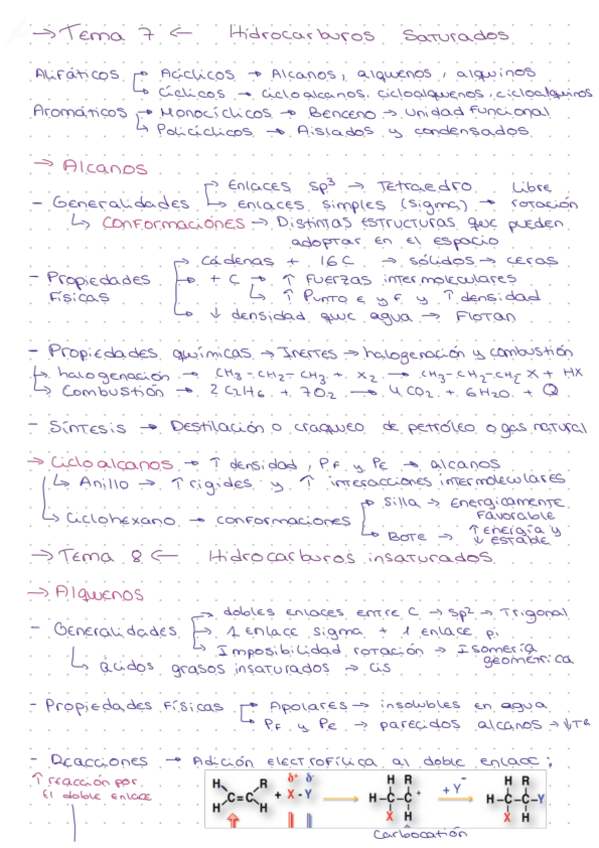 → Tema 7 ← Hidrocarburos Saturados
Alifáticos → Acíclicos → Alcanos, alquenos, alquinos
↳ Cíclicos → cicloalcanos, cicloalquenos, cicloalquinos
Aromáticos → Monocíclicos → Benceno → unidad funcional
↳ Policíclicos → Aislados y condensados
→ Alcanos
- Generalidades → Enlaces sp³ → Tetraedro Libre
↳ enlaces simples (sigma) → rotación
↳ conformaciones → Distintas estructuras que pueden
adoptar en el espacio
- Propiedades Físicas → cadenas + 16C → sólidos → ceras
→ + C → ↑ Fuerzas intermoleculares
↳ ↑ Punto E y F y ↑ densidad
↳ ↓ densidad que agua → Flotan
- Propiedades químicas → Inertes → halogenación y combustión
↳ halogenación → CH3-CH2-CH3 + X2 → CH3-CH2-CH2X + HX
↳ Combustión → 2 C2H6 + 7O2 → 4CO2 + 6H2O + Q
- Síntesis → Destilación o craqueo de petróleo o gas natural
→ Cicloalcanos → ↑ densidad, PF y PE → alcanos
↳ Anillo → ↑ rigides y ↑ interacciones intermoleculares
↳ Ciclohexano → conformaciones → Silla → Energicamente Favorable
↳ Bote → ↑ energía y ↓ estable
→ Tema 8 ← Hidrocarburos insaturados
→ Alquenos
- Generalidades → dobles enlaces entre C → sp² → Trigonal
→ 1 enlace sigma + 1 enlace pi
↳ Imposibilidad rotación → Isomería geométrica
↳ ácidos grasos insaturados → cis
- Propiedades Físicas → Apolares → insolubles en agua
↳ PF y PE → parecidos alcanos →
- Reacciones → Adición electrofílica al doble enlace;
↑ reacción por
El doble enlace
H R δ⁺ δ⁻ H R H R
C=C + X - Y → H-C-C⁺ + Y⁻ → H-C-C-Y
H H X H X H
Carbocatión